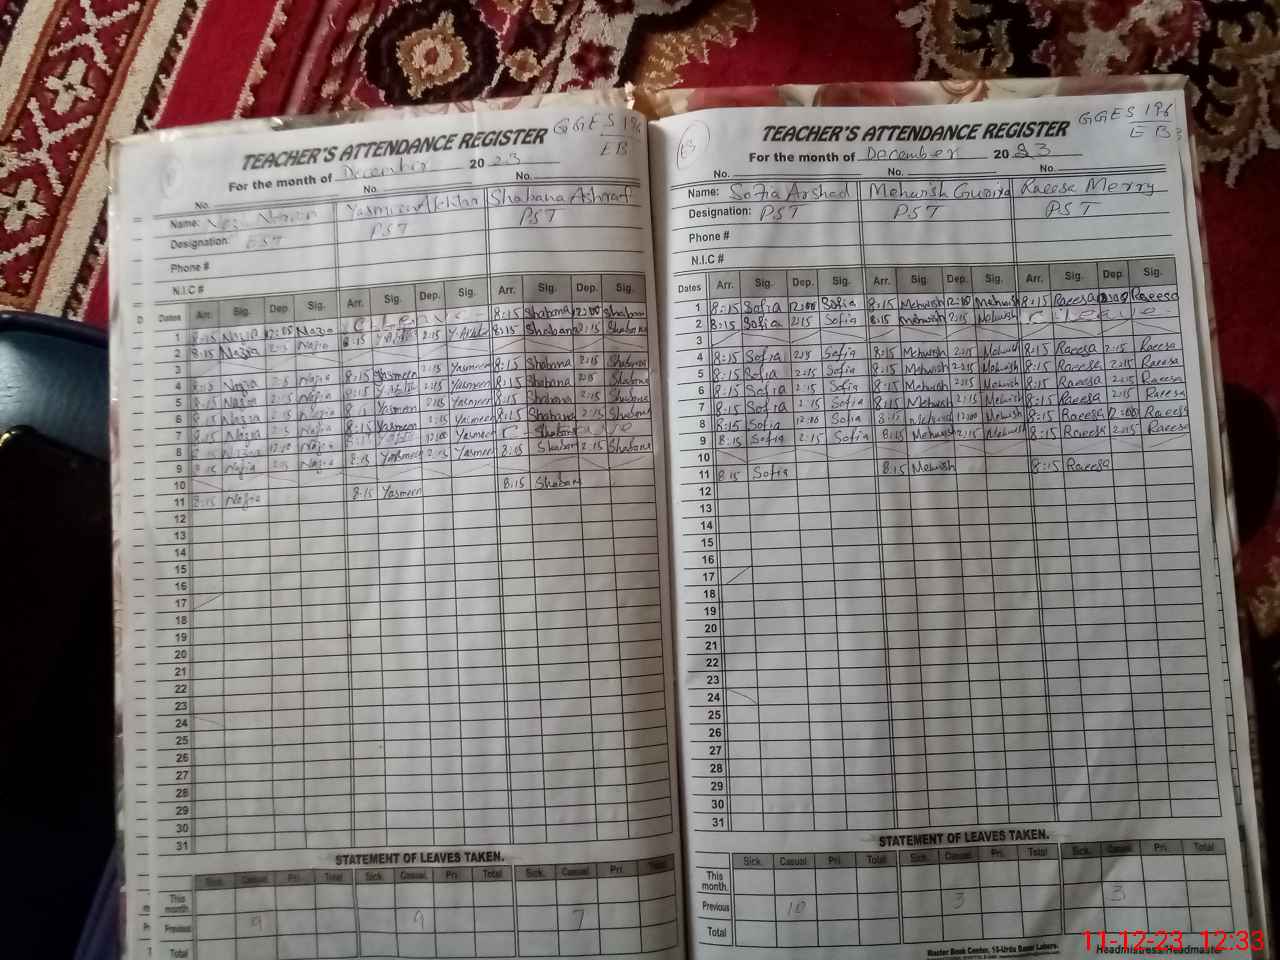 TEACHER'S ATTENDANCE REGISTER GGES 196
EB
For the month of December 2023
No. No. No.
Name: Yasmeen Akhtar Shabana Ashraf
Designation: EST PST PST
Phone #
N.I.C #
Dates Arr. Sig. Dep. Sig. Arr. Sig. Dep. Sig. Arr. Sig. Dep. Sig.
1 8:15 Nazia 12:00 Nazia C. Leave 8:15 Shabana 12:00 Shabana
2 8:15 Nazia 2:15 Nazia 8:15 2:15 8:15 Shabana 2:15 Shabana
3
4 8:15 Nazia 2:15 Nazia 8:15 Yasmeen 2:15 Yasmeen 8:15 Shabana 2:15 Shabana
5 8:15 Nazia 2:15 Nazia 8:15 2:15 Yasmeen 8:15 Shabana 2:15 Shabana
6 8:15 Nazia 2:15 Nazia 8:15 Yasmeen 2:15 Yasmeen 8:15 Shabana 2:15 Shabana
7 8:15 Nazia 2:15 Nazia 8:15 Yasmeen 2:15 Yasmeen 8:15 Shabana 2:15 Shabana
8 8:15 Nazia 12:00 Nazia 8:15 12:00 Yasmeen
9 8:15 Nazia 2:15 Nazia 8:15 Yasmeen 2:15 Yasmeen 8:15 Shabana 2:15 Shabana
10
11 8:15 Nazia 8:15 Yasmeen 8:15 Shabana
12
13
14
15
16
17
18
19
20
21
22
23
24
25
26
27
28
29
30
31
STATEMENT OF LEAVES TAKEN.
Sick. Casual. Pri. Total Sick. Casual. Pri. Total Sick. Casual. Pri. Total
This month.
Previous 9 9 7
Total
TEACHER'S ATTENDANCE REGISTER GGES 196
EB
For the month of December 2023
No. No. No.
Name: Sofia Arshad Mehwish Guriya Raeesa Merry
Designation: PST PST PST
Phone #
N.I.C #
Dates Arr. Sig. Dep. Sig. Arr. Sig. Dep. Sig. Arr. Sig. Dep. Sig.
1 8:15 Sofia 12:00 Sofia 8:15 Mehwish 12:00 Mehwish 8:15 Raeesa 12:00 Raeesa
2 8:15 Sofia 2:15 Sofia 8:15 Mehwish 2:15 Mehwish C. Leave
3
4 8:15 Sofia 2:15 Sofia 8:15 Mehwish 2:15 Mehwish 8:15 Raeesa 2:15 Raeesa
5 8:15 Sofia 2:15 Sofia 8:15 Mehwish 2:15 Mehwish 8:15 Raeesa 2:15 Raeesa
6 8:15 Sofia 2:15 Sofia 8:15 Mehwish 2:15 Mehwish 8:15 Raeesa 2:15 Raeesa
7 8:15 Sofia 2:15 Sofia 8:15 Mehwish 2:15 Mehwish 8:15 Raeesa 2:15 Raeesa
8 8:15 Sofia 12:00 Sofia 8:15 Mehwish 12:00 Mehwish 8:15 Raeesa 12:00 Raeesa
9 8:15 Sofia 2:15 Sofia 8:15 Mehwish 2:15 Mehwish 8:15 Raeesa 2:15 Raeesa
10
11 8:15 Sofia 8:15 Mehwish 8:15 Raeesa
12
13
14
15
16
17
18
19
20
21
22
23
24
25
26
27
28
29
30
31
STATEMENT OF LEAVES TAKEN.
Sick. Casual. Pri. Total Sick. Casual. Pri. Total Sick. Casual. Pri. Total
This month.
Previous 10 3 3
Total
Master Book Center, 15-Urdu Bazar Lahore. Headmistress/Headmaster
11-12-23 12:33